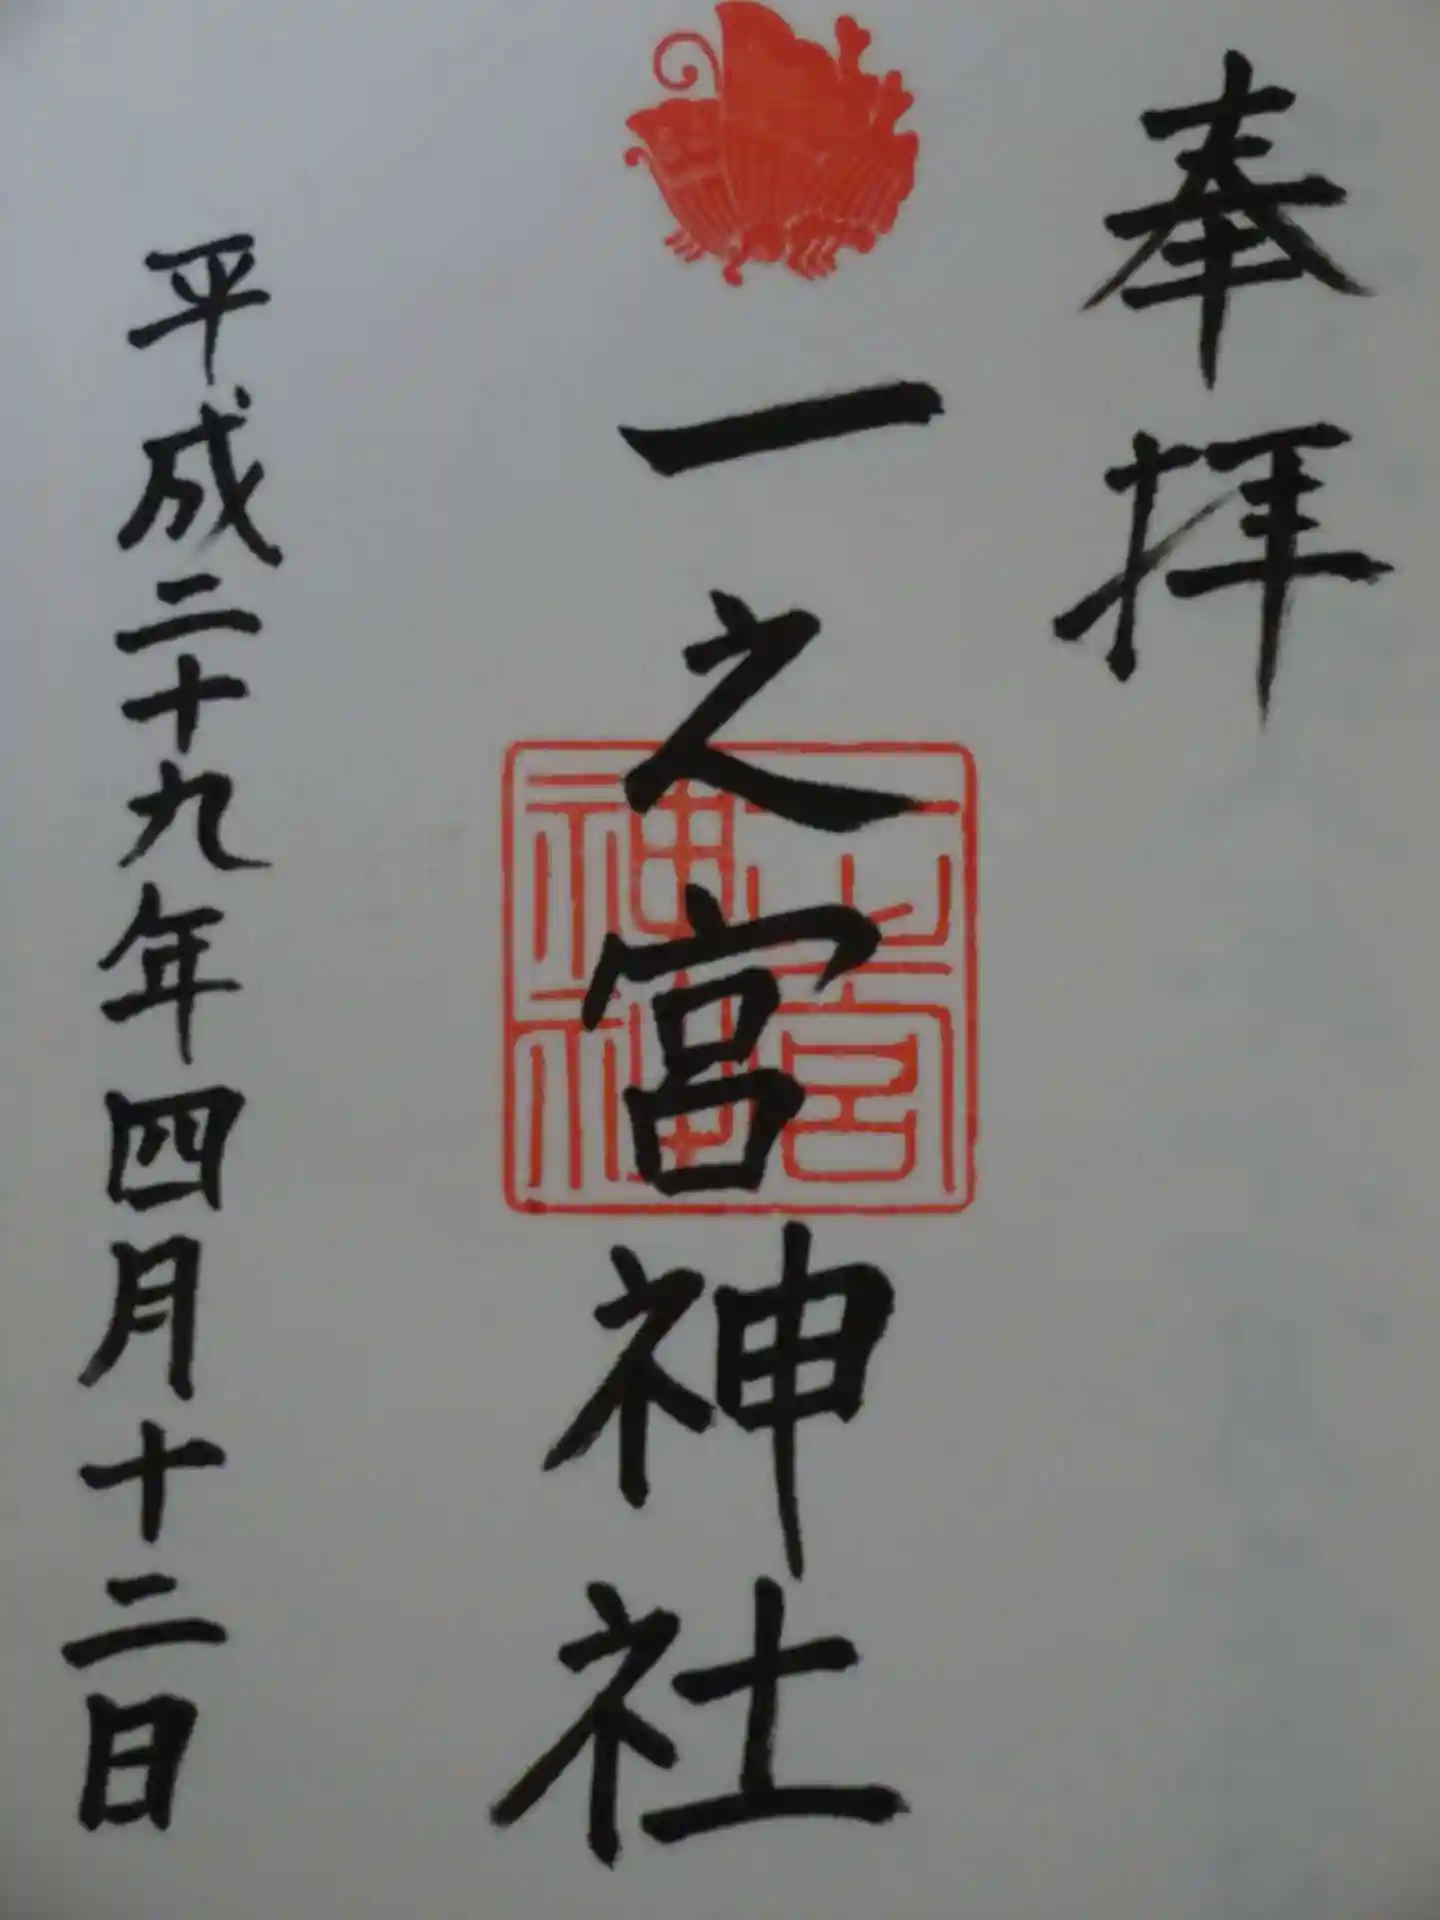 奉拝
一之宮神社
一之宮神社
平成二十九年四月十二日